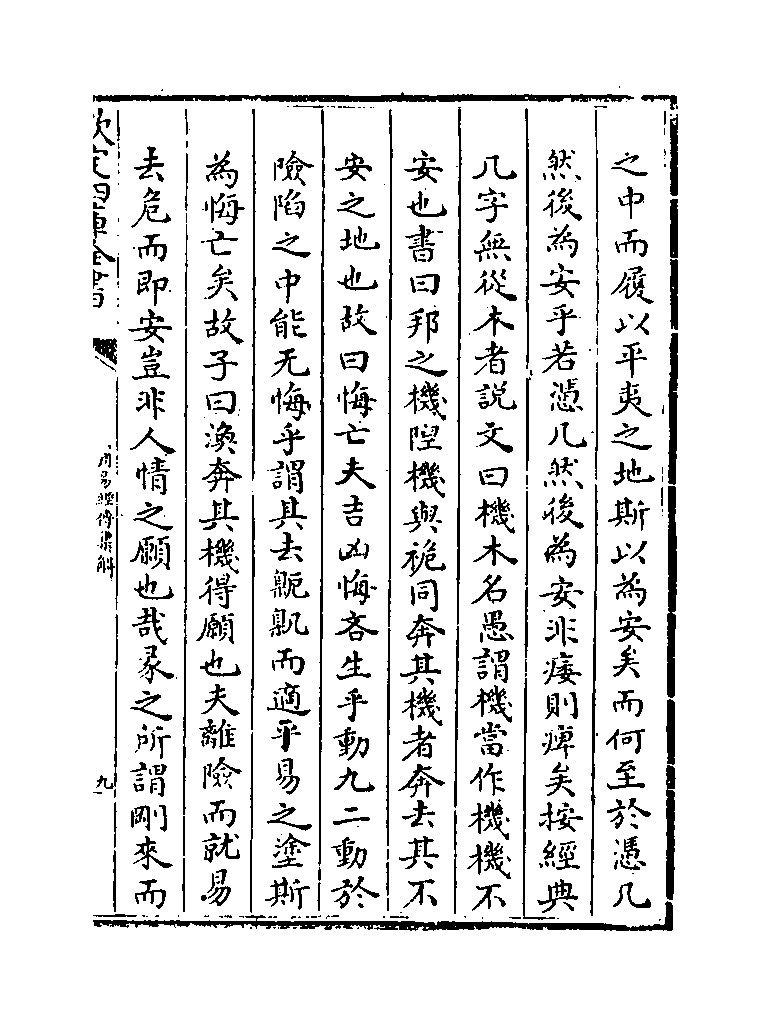 之中而履以平夷之地斯以為安矣而何至於憑几
然後為安乎若憑几然後為安非痿則痺矣按經典
几字無從木者説文曰機木名愚謂機當作機機不
安也書曰邦之機隉機與䄎同奔其機者奔去其不
安之地也故曰悔亡夫吉凶悔吝生乎動九二動於
險陷之中能无悔乎謂其去臲卼而適平易之塗斯
為悔亡矣故子曰渙奔其機得願也夫離險而就易
去危而即安豈非人情之願也哉彖之所謂剛來而
欽定四庫全書
周易經傳集解
九